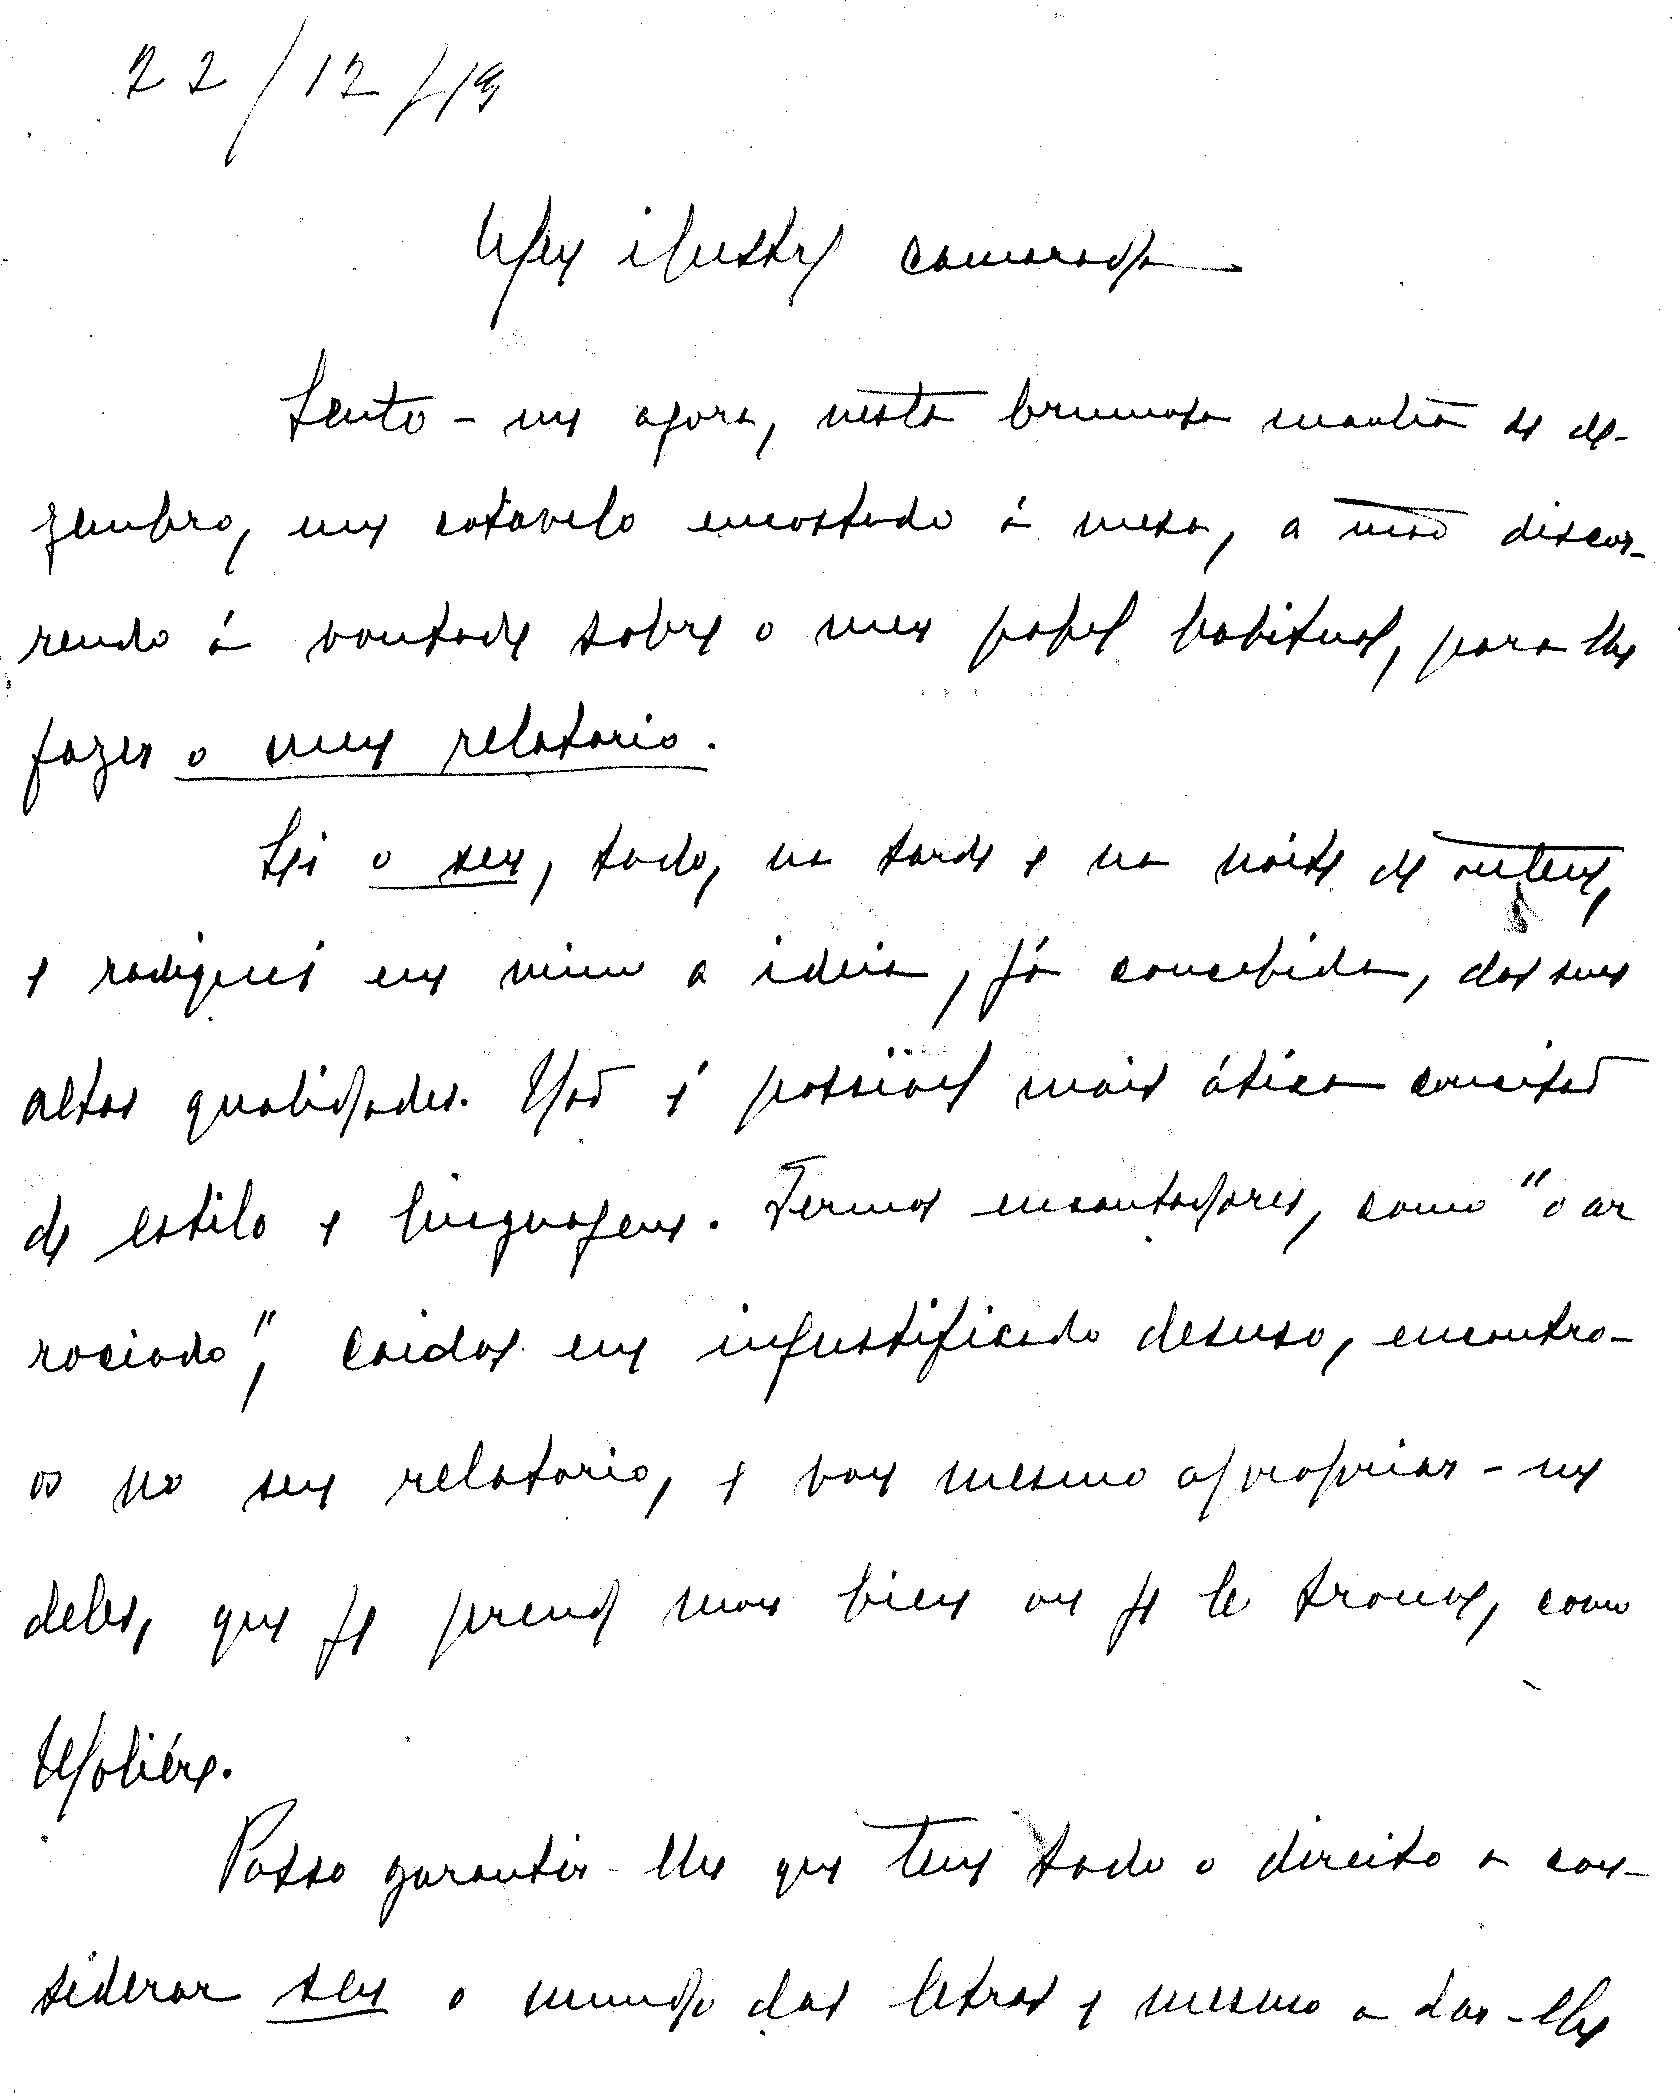 22/12/19
Meu ilustre camarada
Sento-me agora, nesta brumosa manhã de de-
zembro, um cotovelo encostado á mesa, a mão discor-
rendo á vontade sobre o meu papel habitual, para lhe
fazer o meu relatorio.
Lei o seu, todo, na tarde e na noite de ontem,
e radiquei em mim a ideia, já concebida, das suas
altas qualidades. Não é possivel mais ática conceitão
de estilo e linguagem. Termos encantadores, como "o ar
rociado", caidos em injustificado desuso, encontro-
os no seu relatorio, e vou mesmo apropriar-me
deles, que je prend mon bien ou je le trouve, como
Moliére.
Posso garantir-lhe que tem todo o direito a con-
siderar seu o mundo das letras e mesmo a dar-lhe